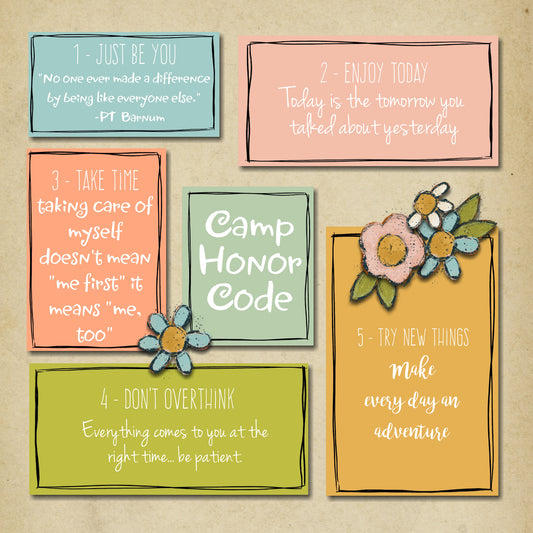 1 - JUST BE YOU
"No one ever made a difference
by being like everyone else."
-PT Barnum
2 - ENJOY TODAY
Today is the tomorrow you
talked about yesterday
3 - TAKE TIME
taking care of
myself
doesn't mean
"me first" it
means "me,
too"
Camp
Honor
Code
4 - DON'T OVERTHINK
Everything comes to you at the
right time... be patient.
5 - TRY NEW THINGS
Make
every day an
adventure